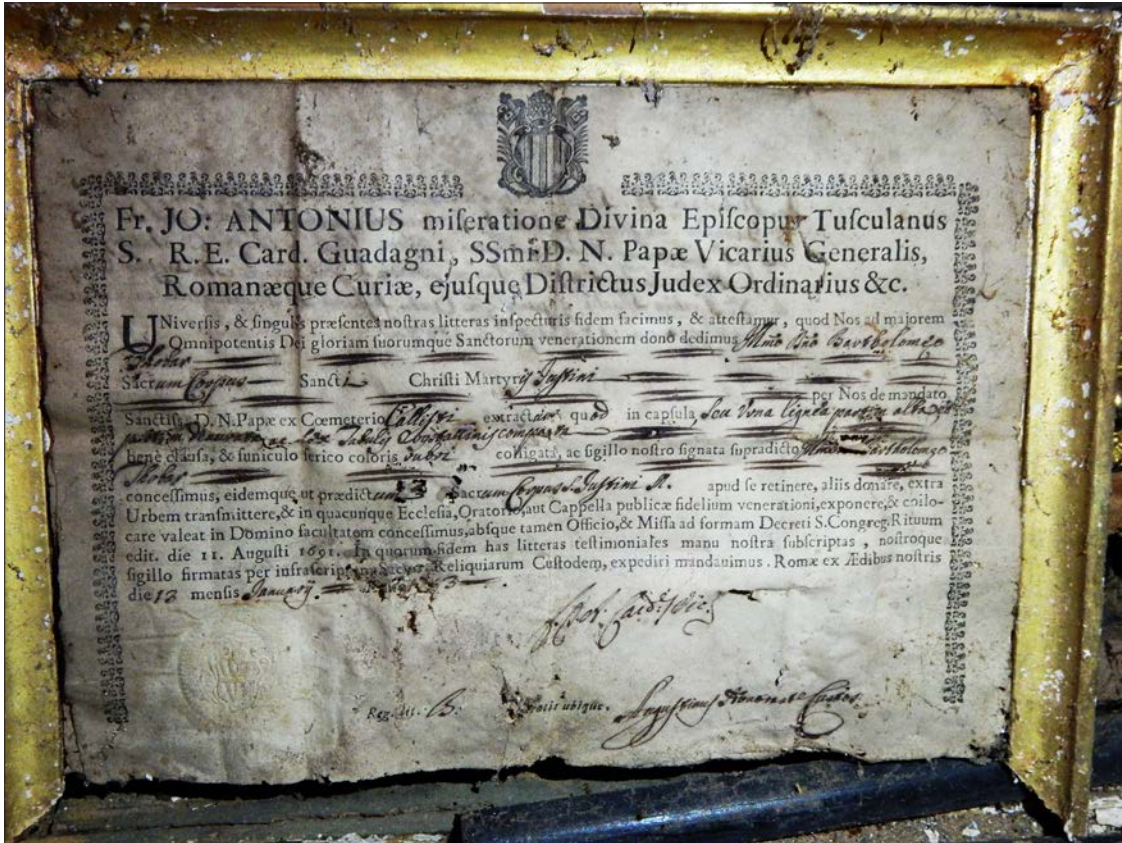 Fr. JO: ANTONIUS miſeratione Divina Epiſcopus Tuſculanus
S. R. E. Card. Guadagni, SSmi D. N. Papæ Vicarius Generalis,
Romanæque Curiæ, ejuſque Diſtrictus Judex Ordinarius &c.
UNiverſis, & ſingulis præſentes noſtras litteras inſpecturis fidem facimus, & atteſtamur, quod Nos ad majorem
Omnipotentis Dei gloriam ſuorumque Sanctorum venerationem dono dedimus Illmo Dno Bartholomeo
Thobar
Sacrum Corpus Sancti Chriſti Martyris Juſtini
per Nos de mandato
Sanctiſs. D. N. Papæ ex Cœmeterio Calliſti extractum quod in capſula, ſeu Urna lignea partim alba, et
partim deaurata ac ex tabulis compacta
benè clauſa, & funiculo ſerico coloris rubri colligata, ac ſigillo noſtro ſignata ſupradicto Illmo Bartholomeo
Thobar
conceſſimus, eidemque ut prædictum Sacrum Corpus S. Juſtini M. apud ſe retinere, aliis donare, extra
Urbem tranſmittere, & in quacunque Eccleſia, Oratorio, aut Cappella publicæ fidelium venerationi, exponere, & collo-
care valeat in Domino facultatem conceſſimus, abſque tamen Officio, & Miſſa ad formam Decreti S. Congreg. Rituum
edit. die 11. Auguſti 1691. In quorum fidem has litteras teſtimoniales manu noſtra ſubſcriptas, noſtroque
ſigillo firmatas per infraſcriptum Sacrar. Reliquiarum Cuſtodem, expediri mandavimus. Romæ ex Ædibus noſtris
die 13 menſis Januarij 3
Card. Vic.
Reg. lit. B. Gratis ubique. Auguſtinus Cuſtos